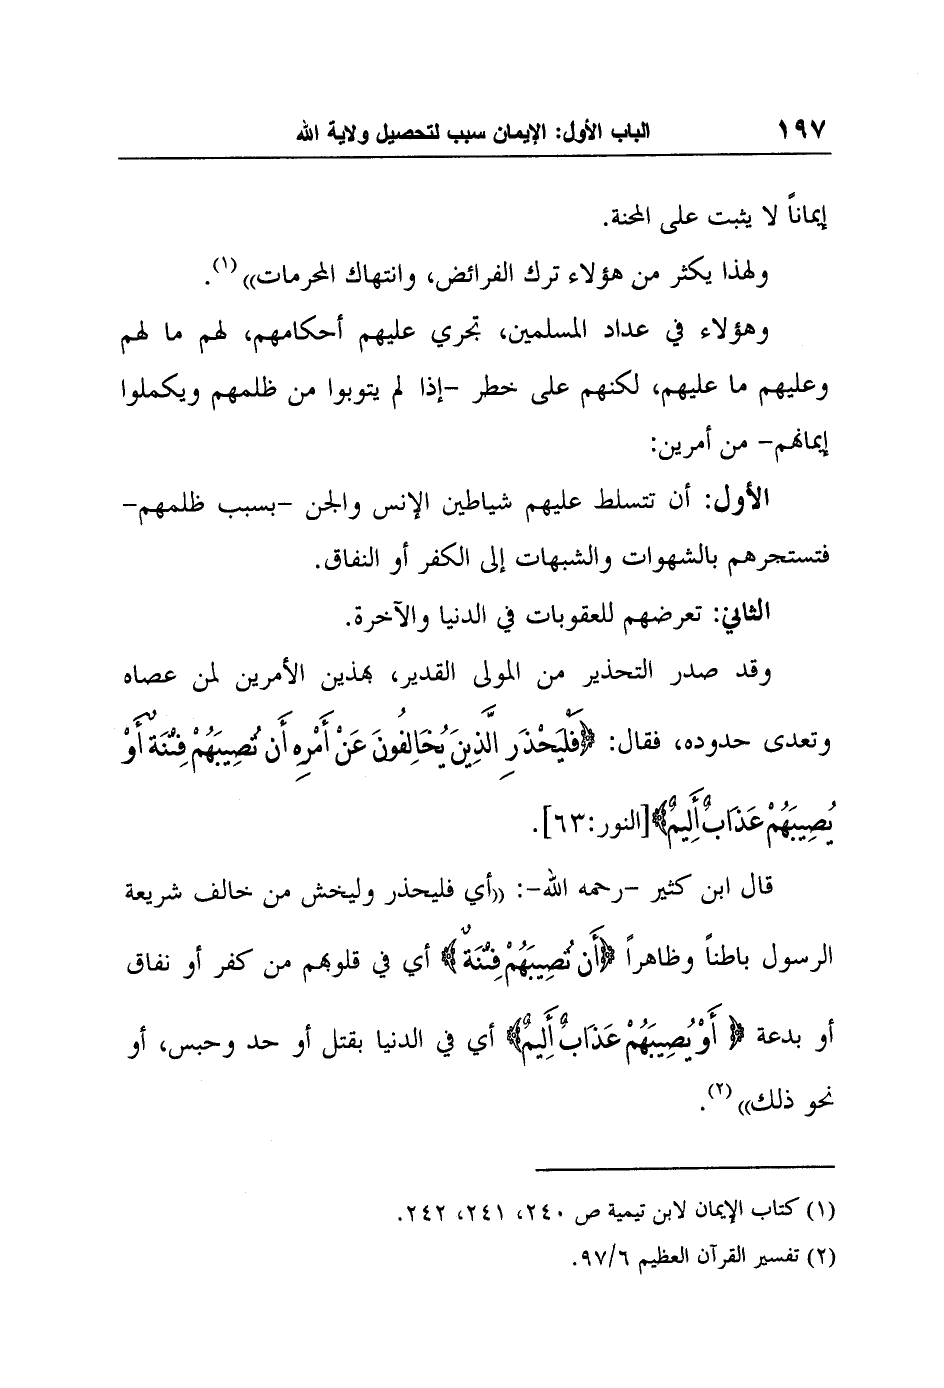 ١٩٧ الباب الأول: الإيمان سبب لتحصيل ولاية الله
إيماناً لا يثبت على المحنة.
ولهذا يكثر من هؤلاء ترك الفرائض، وانتهاك المحرمات))(١).
وهؤلاء في عداد المسلمين، تجري عليهم أحكامهم، لهم ما لهم
وعليهم ما عليهم، لكنهم على خطر -إذا لم يتوبوا من ظلمهم ويكملوا
إيمانهم- من أمرين:
الأول: أن تتسلط عليهم شياطين الإنس والجن -بسبب ظلمهم-
فتستجرهم بالشهوات والشبهات إلى الكفر أو النفاق.
الثاني: تعرضهم للعقوبات في الدنيا والآخرة.
وقد صدر التحذير من المولى القدير، بهذين الأمرين لمن عصاه
وتعدى حدوده، فقال: ﴿فَلْيَحْذَرِ الَّذِينَ يُخَالِفُونَ عَنْ أَمْرِهِ أَن تُصِيبَهُمْ فِتْنَةٌ أَوْ
يُصِيبَهُمْ عَذَابٌ أَلِيمٌ﴾[النور:٦٣].
قال ابن كثير -رحمه الله-: ((أي فليحذر وليخش من خالف شريعة
الرسول باطناً وظاهراً ﴿أَن تُصِيبَهُمْ فِتْنَةٌ﴾ أي في قلوبهم من كفر أو نفاق
أو بدعة ﴿أَوْ يُصِيبَهُمْ عَذَابٌ أَلِيمٌ﴾ أي في الدنيا بقتل أو حد وحبس، أو
نحو ذلك))(٢).
(١) كتاب الإيمان لابن تيمية ص ٢٤٠، ٢٤١، ٢٤٢.
(٢) تفسير القرآن العظيم ٩٧/٦.